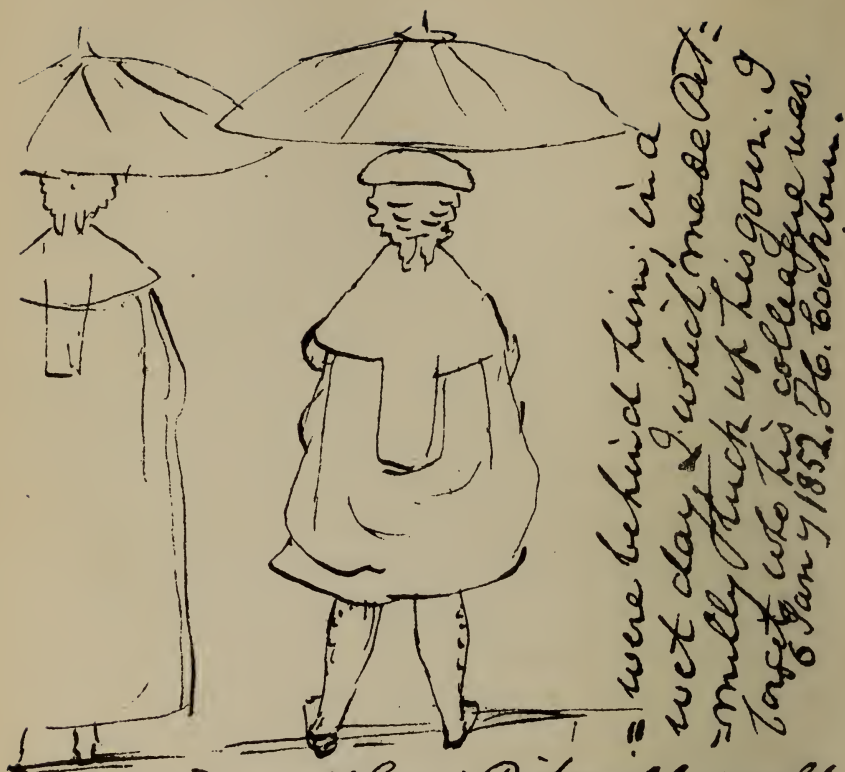 = were behind him, in a
wet day, & which made Pit=
=milly tuck up his gown. I
forget who his colleague was.
6 Jany 1852. H. Cockburn.